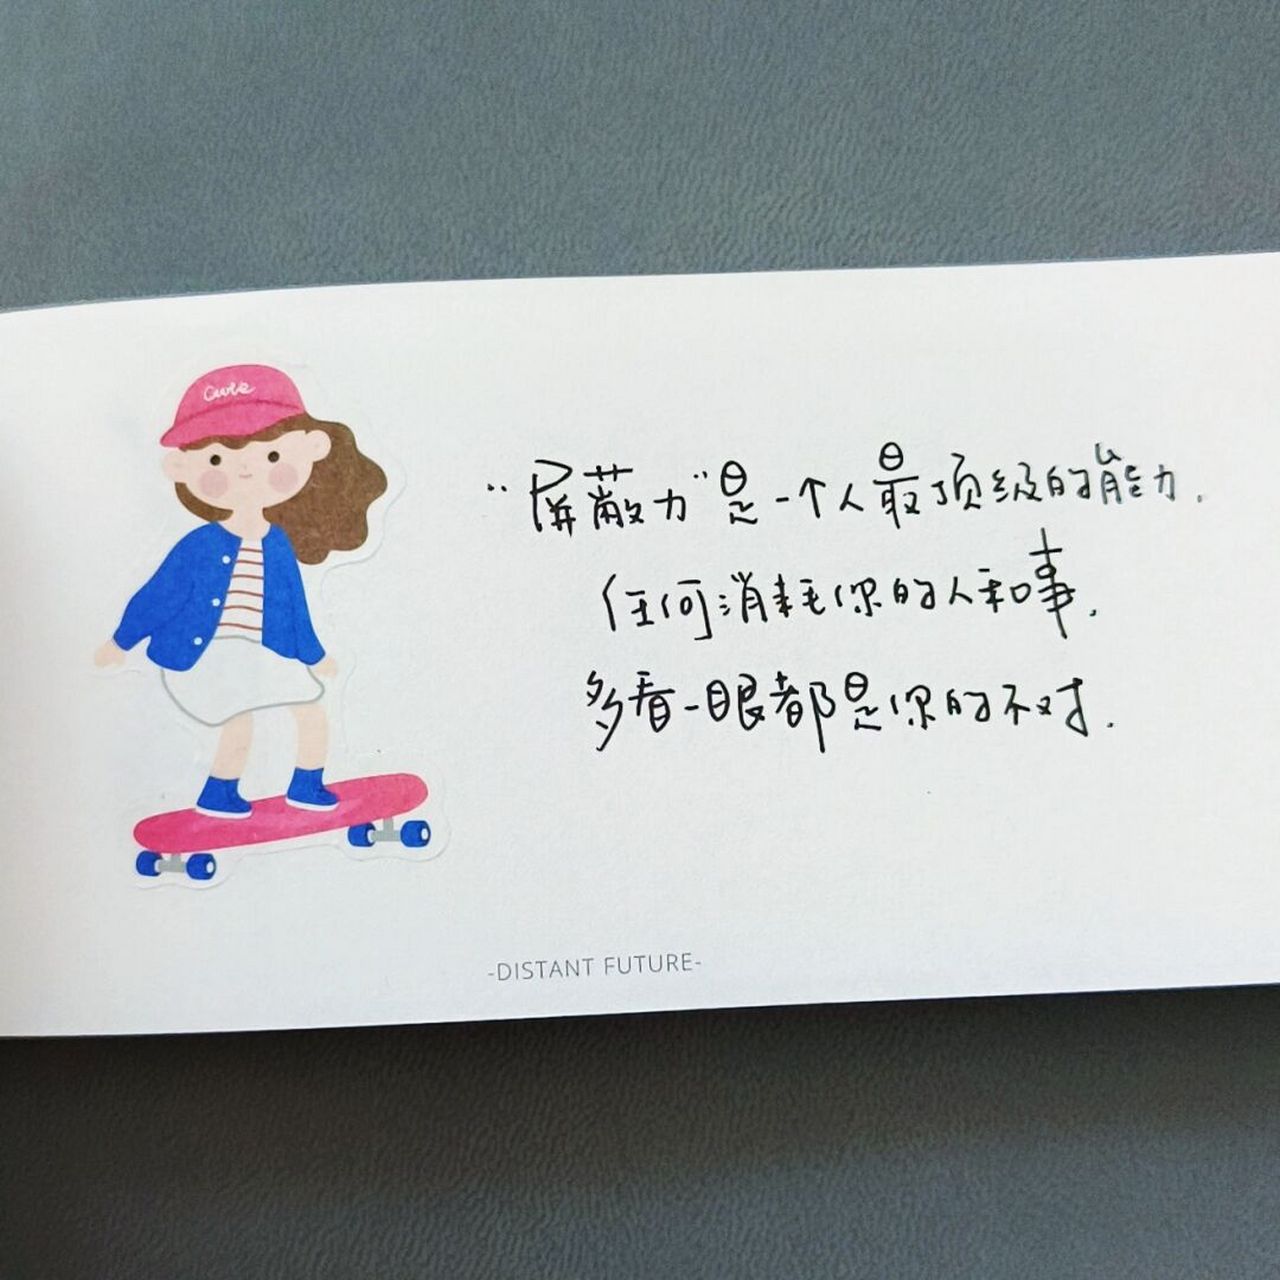 “屏蔽力”是一个人最顶级的能力.
任何消耗你的人和事.
多看一眼都是你的不对.
-DISTANT FUTURE-